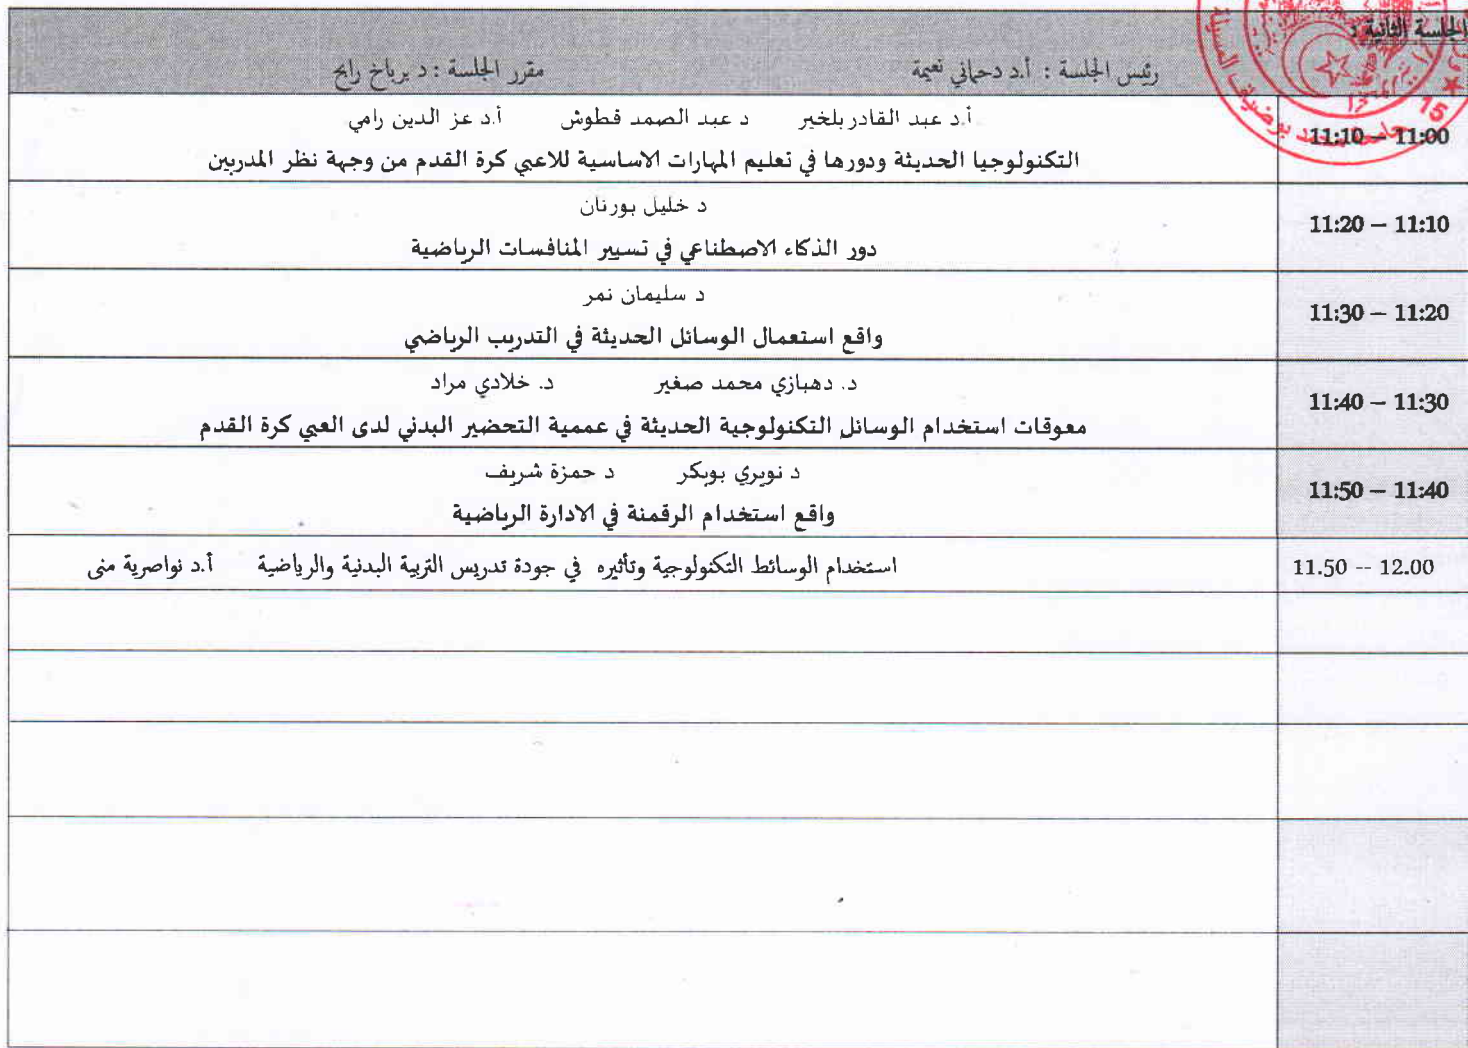 الجلسة الثانية :
رئيس الجلسة : أ.د دحماني نعيمة مقرر الجلسة : د برباخ رابح
11:10 – 11:00
أ.د عبد القادر بلخير د عبد الصمد قطوش أ.د عز الدين رامي
التكنولوجيا الحديثة ودورها في تعليم المهارات الاساسية للاعبي كرة القدم من وجهة نظر المدربين
11:20 – 11:10
د خليل بورنان
دور الذكاء الاصطناعي في تسيير المنافسات الرياضية
11:30 – 11:20
د سليمان نمر
واقع استعمال الوسائل الحديثة في التدريب الرياضي
11:40 – 11:30
د. دهبازي محمد صغير د. خلادي مراد
معوقات استخدام الوسائل التكنولوجية الحديثة في عممية التحضير البدني لدى العبي كرة القدم
11:50 – 11:40
د نويري بوبكر د حمزة شريف
واقع استخدام الرقمنة في الادارة الرياضية
11.50 -- 12.00
استخدام الوسائط التكنولوجية وتأثيره في جودة تدريس التربية البدنية والرياضية أ.د نواصرية منى
15